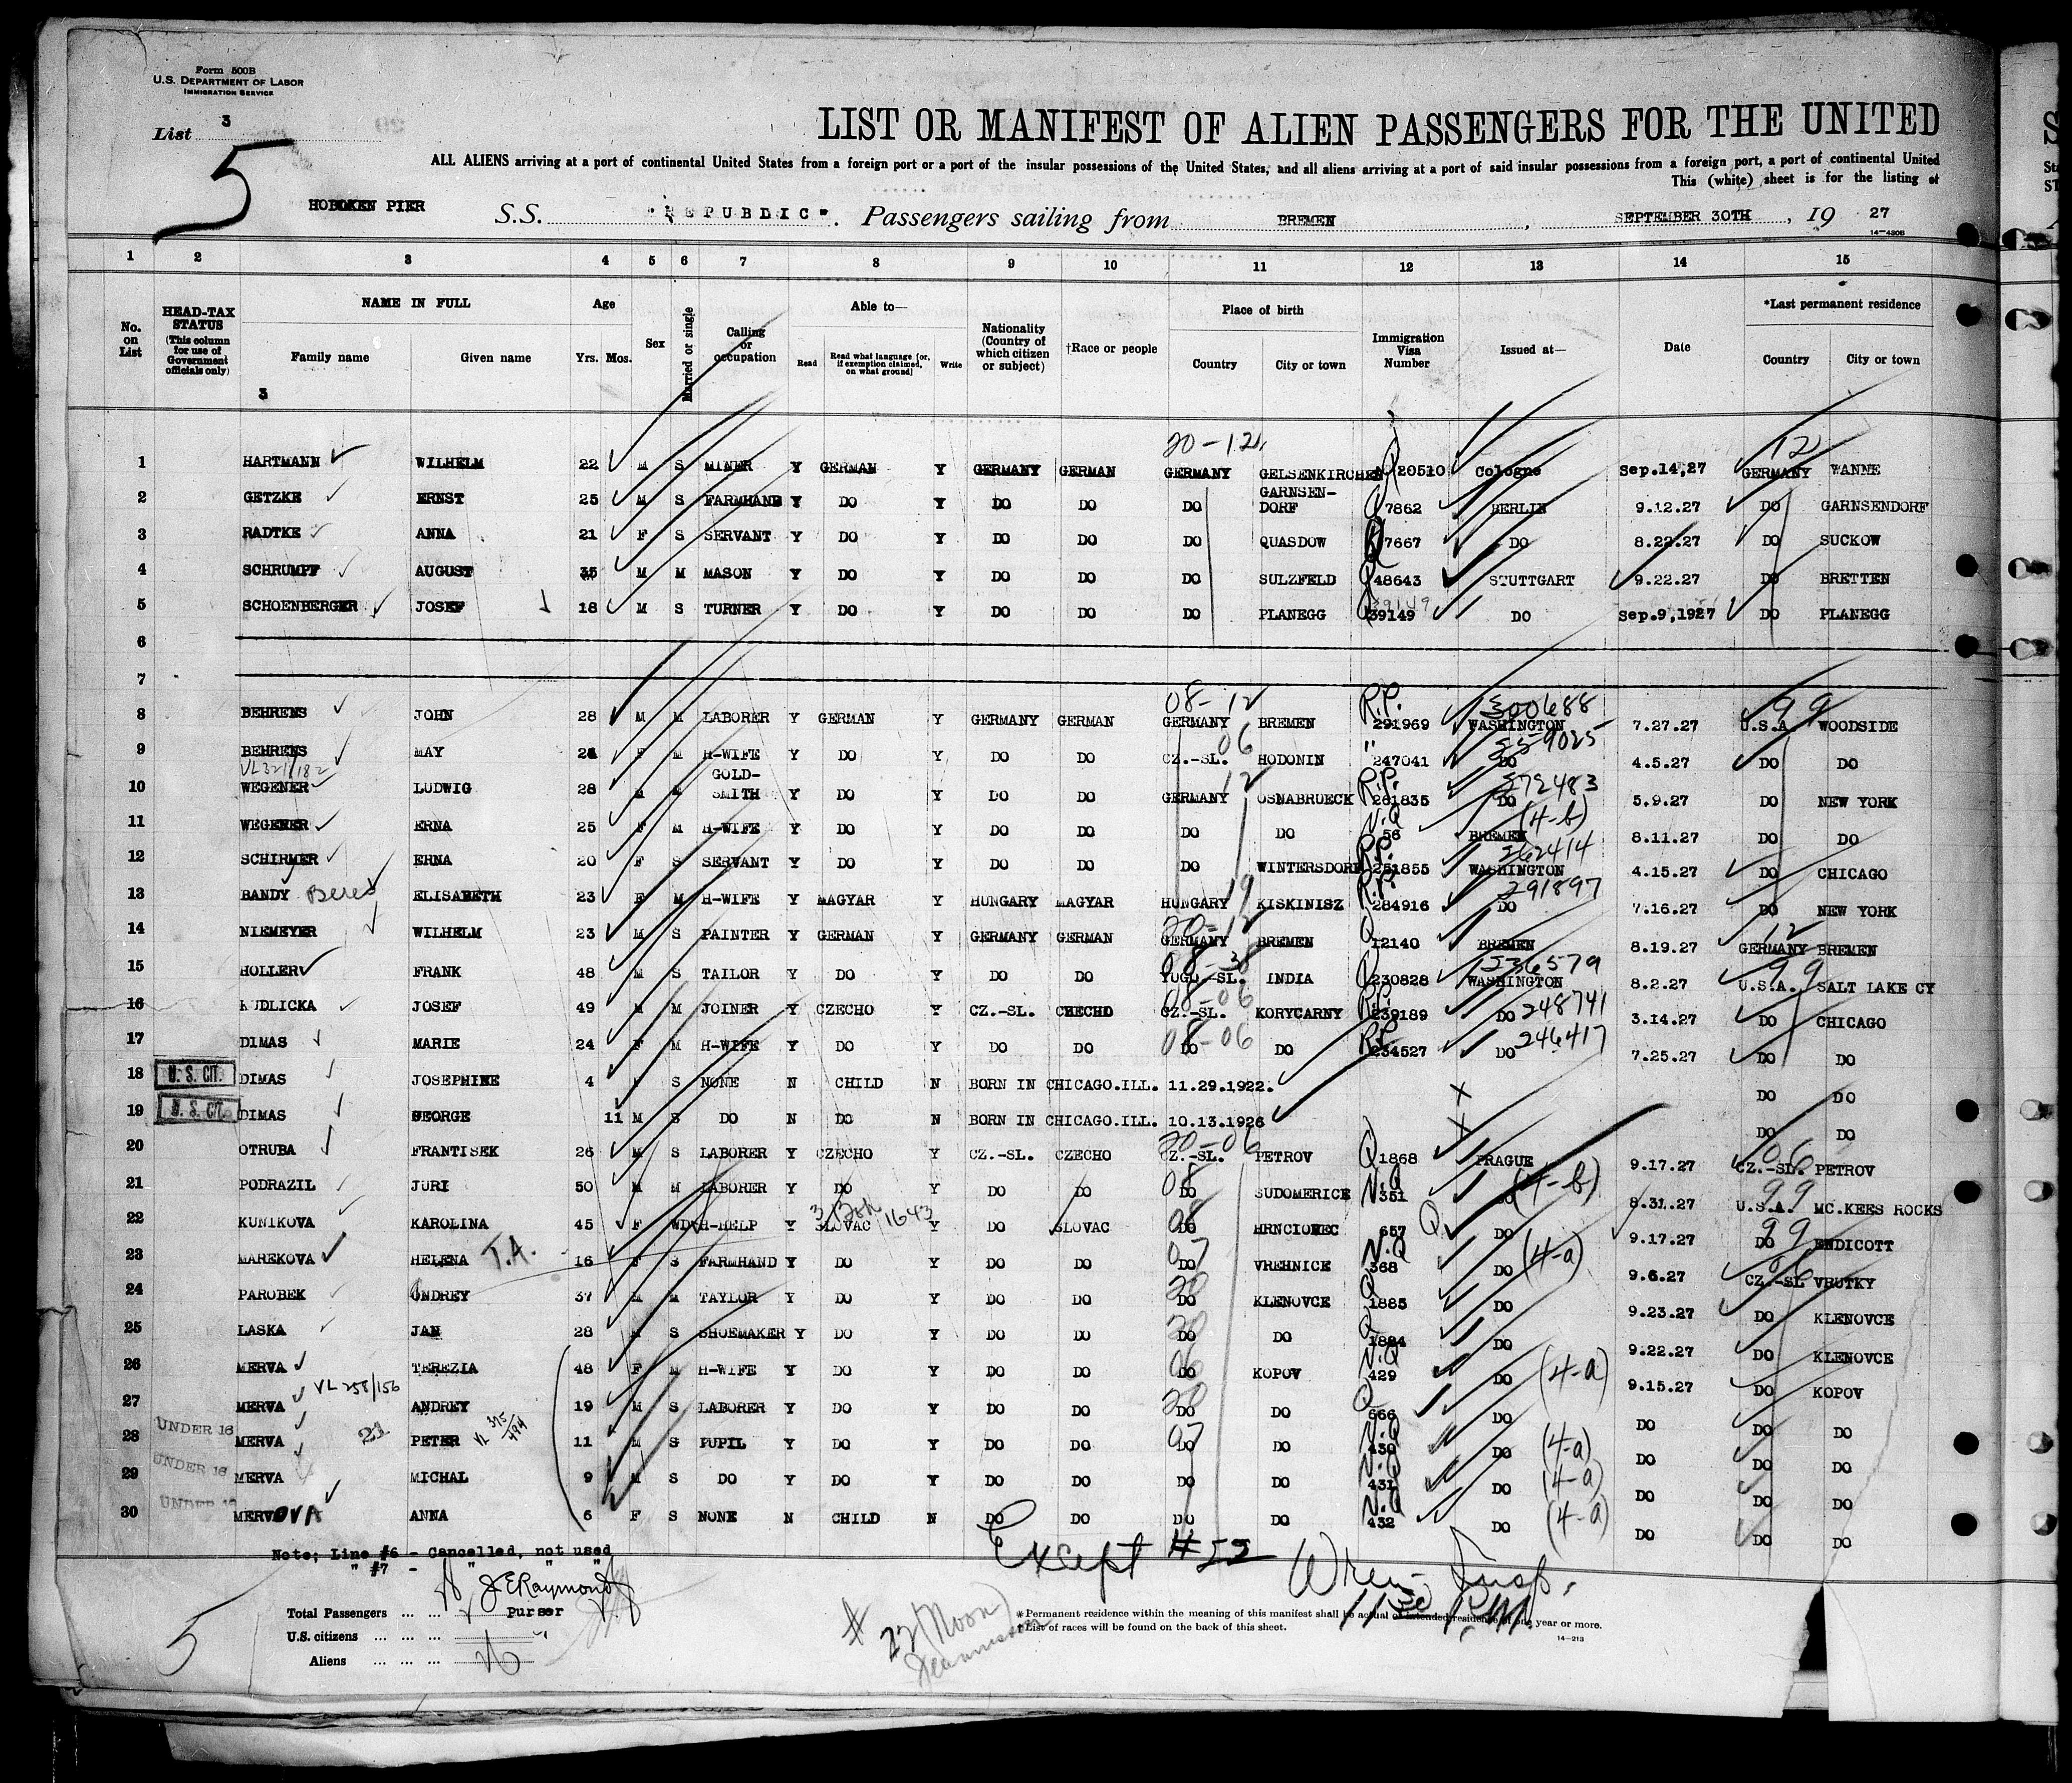 Form 500B
U.S. DEPARTMENT OF LABOR
IMMIGRATION SERVICE
List 3
5
LIST OR MANIFEST OF ALIEN PASSENGERS FOR THE UNITED
ALL ALIENS arriving at a port of continental United States from a foreign port or a port of the insular possessions of the United States, and all aliens arriving at a port of said insular possessions from a foreign port, a port of continental United
This (white) sheet is for the listing of
HOBOKEN PIER S.S. "REPUBLIC". Passengers sailing from BREMEN, SEPTEMBER 30TH, 19 27
14—430B
1 2 3 4 5 6 7 8 9 10 11 12 13 14 15
No. on List
HEAD-TAX STATUS (This column for use of Government officials only)
NAME IN FULL
Family name Given name
3
Age
Yrs. Mos.
Sex
Married or single
Calling or occupation
Able to—
Read Read what language [or, if exemption claimed, on what ground] Write
Nationality (Country of which citizen or subject)
†Race or people
Place of birth
Country City or town
Immigration Visa Number
Issued at—
Date
*Last permanent residence
Country City or town
20-12 12
1 HARTMANN WILHELM 22 M S MINER Y GERMAN Y GERMANY GERMAN GERMANY GELSENKIRCHEN Q 20510 Cologne Sep.14,27 GERMANY WANNE
2 GETZKE ERNST 25 M S FARMHAND Y DO Y DO DO DO GARNSEN-DORF Q 7862 BERLIN 9.12.27 DO GARNSENDORF
3 RADTKE ANNA 21 F S SERVANT Y DO Y DO DO DO QUASDOW Q 7667 DO 8.22.27 DO SUCKOW
4 SCHRUMPF AUGUST 35 M M MASON Y DO Y DO DO DO SULZFELD Q 48643 STUTTGART 9.22.27 DO BRETTEN
5 SCHOENBERGER JOSEF 18 M S TURNER Y DO Y DO DO DO PLANEGG Q 39149 39149 DO Sep.9,1927 DO PLANEGG
6
7
08-12 R.P. 300688 99
8 BEHRENS JOHN 28 M M LABORER Y GERMAN Y GERMANY GERMAN GERMANY BREMEN 291969 WASHINGTON 7.27.27 U.S.A. WOODSIDE
9 BEHRENS MAY F M H-WIFE Y DO Y DO DO CZ.-SL. 06 HODONIN " 247041 DO 4.5.27 DO DO
VL321/182
10 WEGENER LUDWIG 28 M M GOLD-SMITH Y DO Y DO DO GERMANY 12 OSNABRUECK R.P. 261835 DO 272483 5.9.27 DO NEW YORK
11 WEGENER ERNA 25 F M H-WIFE Y DO Y DO DO DO DO N.Q 56 BREMEN (4-b) 8.11.27 DO DO
12 SCHIRMER ERNA 20 F S SERVANT Y DO Y DO DO DO WINTERSDORF R.P. 251855 WASHINGTON 262414 4.15.27 DO CHICAGO
13 BANDY ELISABETH 23 F M H-WIFE Y MAGYAR Y HUNGARY MAGYAR HUNGARY 19 KISKINISZ R.P. 284916 DO 291897 7.16.27 DO NEW YORK
14 NIEMEYER WILHELM 23 M S PAINTER Y GERMAN Y GERMANY GERMAN GERMANY 20-12 BREMEN Q 12140 BREMEN 8.19.27 GERMANY 12 BREMEN
15 HOLLER FRANK 48 M S TAILOR Y DO Y DO DO YUGO.-SL. INDIA 230828 WASHINGTON 236579 8.2.27 U.S.A. 99 SALT LAKE CY
16 KUDLICKA JOSEF 49 M M JOINER Y CZECHO Y CZ.-SL. CZECHO CZ.-SL. 08-06 KORYCARNY R.P. 239189 DO 248741 3.14.27 DO CHICAGO
17 DIMAS MARIE 24 F M H-WIFE Y DO Y DO DO DO 08-06 DO R.P. 234527 DO 246417 7.25.27 DO DO
18 U.S. CIT. DIMAS JOSEPHINE 4 F S NONE N CHILD N BORN IN CHICAGO.ILL. 11.29.1922. X DO DO
19 U.S. CIT. DIMAS GEORGE 11 M S DO N DO N BORN IN CHICAGO.ILL. 10.13.1926 X DO DO
20 OTRUBA FRANTISEK 26 M S LABORER Y CZECHO Y CZ.-SL. CZECHO CZ.-SL. 20-06 PETROV Q 1868 PRAGUE 9.17.27 CZ.-SL. 06 PETROV
21 PODRAZIL JURI 50 M M LABORER Y DO Y DO DO DO 08 SUDOMERICE N.Q 351 DO (4-b) 8.31.27 U.S.A. 99 MC.KEES ROCKS
22 KUNIKOVA KAROLINA 45 F WD H-HELP Y SLOVAC 1643 Y DO SLOVAC DO 08 HRNCIOVEC 657 Q DO 9.17.27 DO 99 ENDICOTT
23 MAREKOVA HELENA T.A. 16 F S FARMHAND Y DO Y DO DO DO 07 VREHNICE N.Q 368 DO (4-a) 9.6.27 CZ.-SL 06 VRUTKY
24 PAROBEK ONDREY 37 M M TAYLOR Y DO Y DO DO DO 20 KLENOVCE Q 1885 DO 9.23.27 DO KLENOVCE
25 LASKA JAN 28 M S SHOEMAKER Y DO Y DO DO DO 20 DO Q 1884 DO 9.22.27 DO KLENOVCE
26 MERVA TEREZIA 48 F M H-WIFE Y DO Y DO DO DO 06 KOPOV N.Q 429 DO (4-a) 9.15.27 DO KOPOV
VL 258/156
27 MERVA ANDREY 19 M S LABORER Y DO Y DO DO DO 20 DO Q 666 DO DO DO DO
28 UNDER 16 MERVA 21 PETER VL 315/494 11 M S PUPIL Y DO Y DO DO DO 07 DO N.Q 430 DO (4-a) DO DO DO
29 UNDER 16 MERVA MICHAL 9 M S DO Y DO Y DO DO DO DO N.Q 431 DO (4-a) DO DO DO
30 UNDER 16 MERVOVA ANNA 6 F S NONE N CHILD N DO DO DO DO N.Q 432 DO (4-a) DO DO DO
Note; Line #6 - Cancelled, not used
" #7 - " " "
Except #22 Wren- Insp.
1130 P.M.
J E Raymond
Purser
Total Passengers ... ...
U.S. citizens ... ... ...
Aliens ... ... ...
5
# 22 (Noon)
* Permanent residence within the meaning of this manifest shall be actual or intended residence of one year or more.
† List of races will be found on the back of this sheet.
14—213